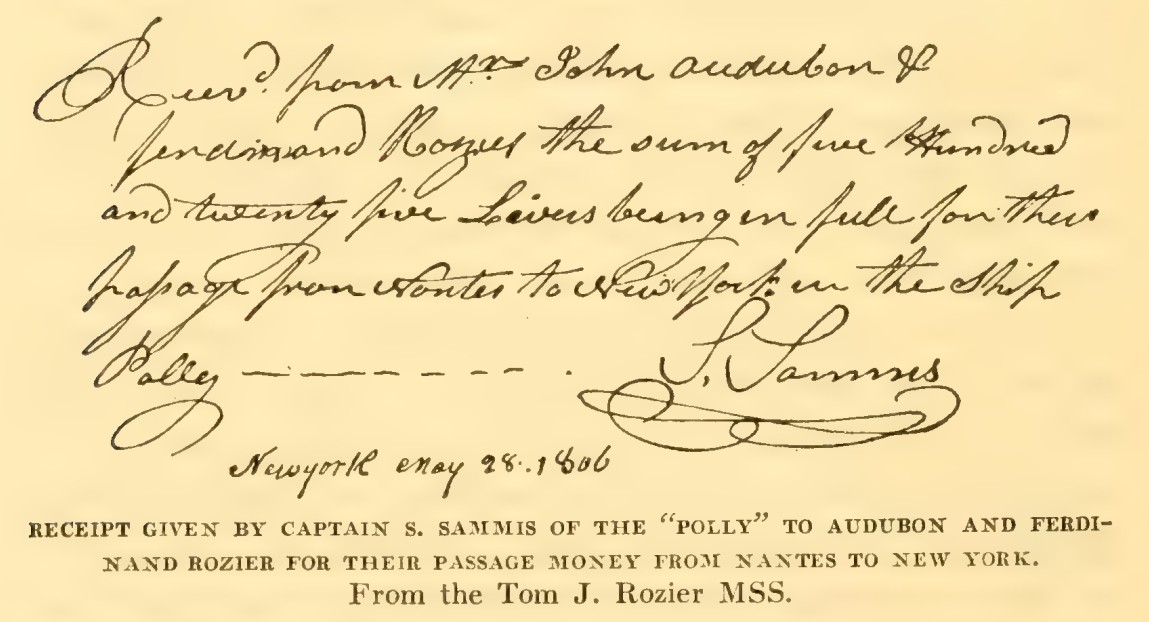 Receivd. from Mr. John Audubon &
ferdinand Rozier the sum of five Hundred
and twenty five Livers being in full for their
passage from Nantes to New York in the Ship
Polly — — — — — — — . S. Sammis
Newyork May 28. 1806
RECEIPT GIVEN BY CAPTAIN S. SAMMIS OF THE "POLLY" TO AUDUBON AND FERDI-
NAND ROZIER FOR THEIR PASSAGE MONEY FROM NANTES TO NEW YORK.
From the Tom J. Rozier MSS.